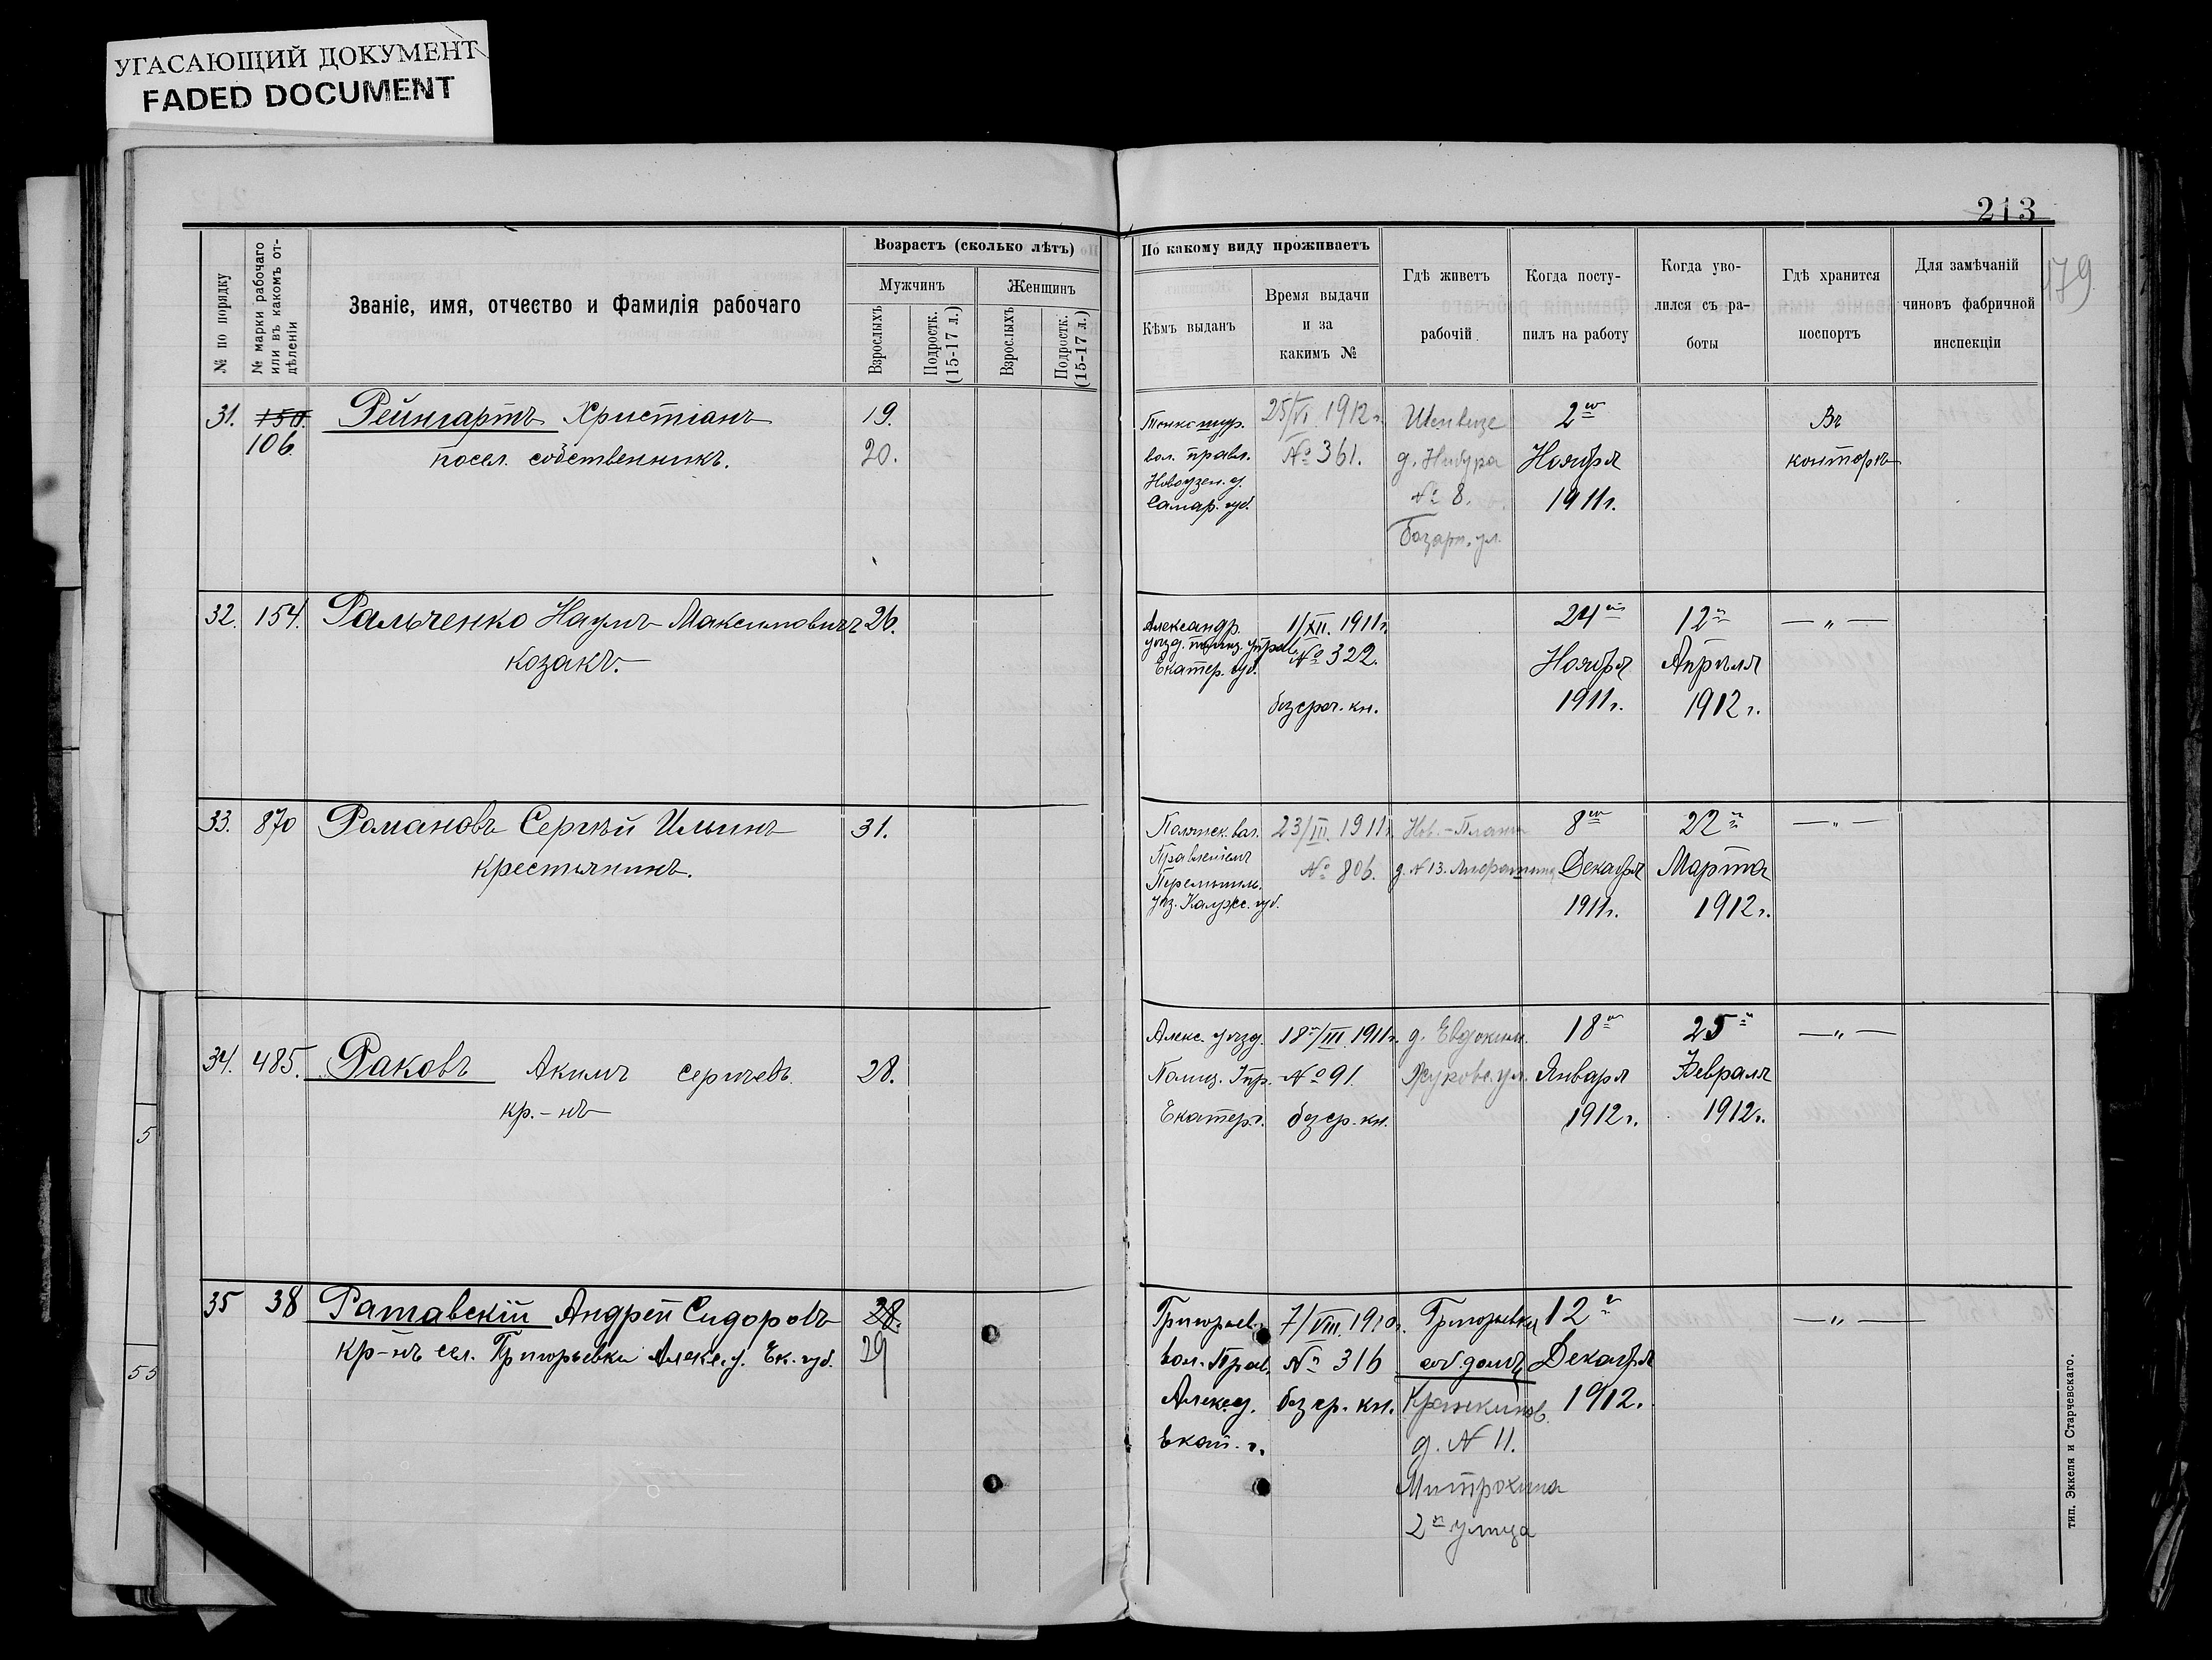 УГАСАЮЩИЙ ДОКУМЕНТ
FADED DOCUMENT
213
179
№ по порядку
№ марки рабочаго или въ какомъ отдѣленіи
Званіе, имя, отчество и Фамилія рабочаго
Возрастъ (сколько лѣтъ)
Мужчинъ
Женщинъ
Взрослыхъ
Подростк. (15-17 л.)
Взрослыхъ
Подростк. (15-17 л.)
По какому виду проживаетъ
Кѣмъ выданъ
Время выдачи
и за
какимъ №
Гдѣ живетъ
рабочій
Когда посту-
пилъ на работу
Когда уво-
лился съ ра-
боты
Гдѣ хранится
поспортъ
Для замѣчаній
чиновъ фабричной
инспекціи
31. 150. Рейнгартъ Христіанъ 19.
106. посел. собственникъ. 20.
вол. правл.
Новоузен. у.
Самар. губ.
25/VI. 1912 г.
№ 361.
№ 8.
Базарн. ул.
2го
Ноября
1911 г.
Въ
конторѣ
32. 154. Ральченко Наумъ Максимовичъ 26.
козакъ.
Александр.
уѣзд. полиц. управ.
Екатер. губ.
1/XII. 1911 г.
№ 322.
безсроч. кн.
24го
Ноября
1911 г.
12го
Апрѣля
1912 г.
— „ —
33. 870 Романовъ Сергѣй Ильинъ 31.
Крестьянинъ.
Правленіемъ
Перемышль.
уѣз. Калужс. губ.
23/III. 1911 г.
№ 806.
Нов.-Планъ
д. № 13.
8го
Декабря
1911 г.
22го
Марта
1912 г.
— „ —
34. 485. Раковъ Акимъ Сергѣевъ. 28.
кр.-нъ
Алекс. уѣзд.
Полиц. Упр.
Екатер. г.
18го/III. 1911 г.
№ 91.
безср. кн.
д. Евдоким.
Жуковс. ул.
18го
Января
1912 г.
25го
Февраля
1912 г.
— „ —
35 38 Ратавскій Андрей Сидоровъ 28.
Кр-нъ сел. Григорьевки Алекс. у. Ек. губ. 29
Григорьев.
вол. Прав.
Алекс. у.
Екат. г.
7/VIII. 1910 г.
№ 316
безср. кн.
Григорьевка
соб. домъ
д. № 11.
Митрохина
2я улица
12го
Декабря
1912.
— „ —
5
55
тип. Эккеля и Старчевскаго.